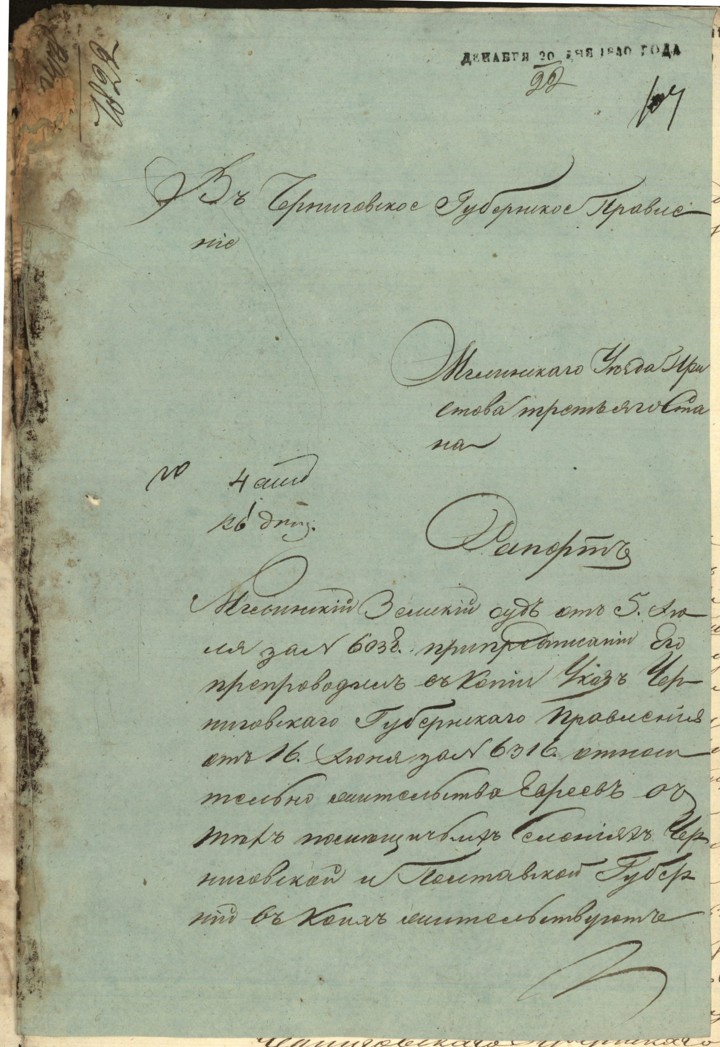 ДЕКАБРЯ 20 ДНЯ 1840 ГОДА
22
Въ Черниговское Губернское Правле-
ніе
Мглинскаго Уѣзда При
става третьяго Ста
на
Рапортъ
Мглинскій Земскій судъ отъ 5. Ію
ля за N 6038. при предписаніи Его
препроводилъ въ Копіи Указъ Чер-
ниговскаго Губернскаго Правленія
отъ 16. Іюня за N 6316. относи
тельно жительства Евреевъ въ
тѣхъ Селеніяхъ Чер
ниговской и Полтавской Губер
ній въ Коихъ жительствуютъ